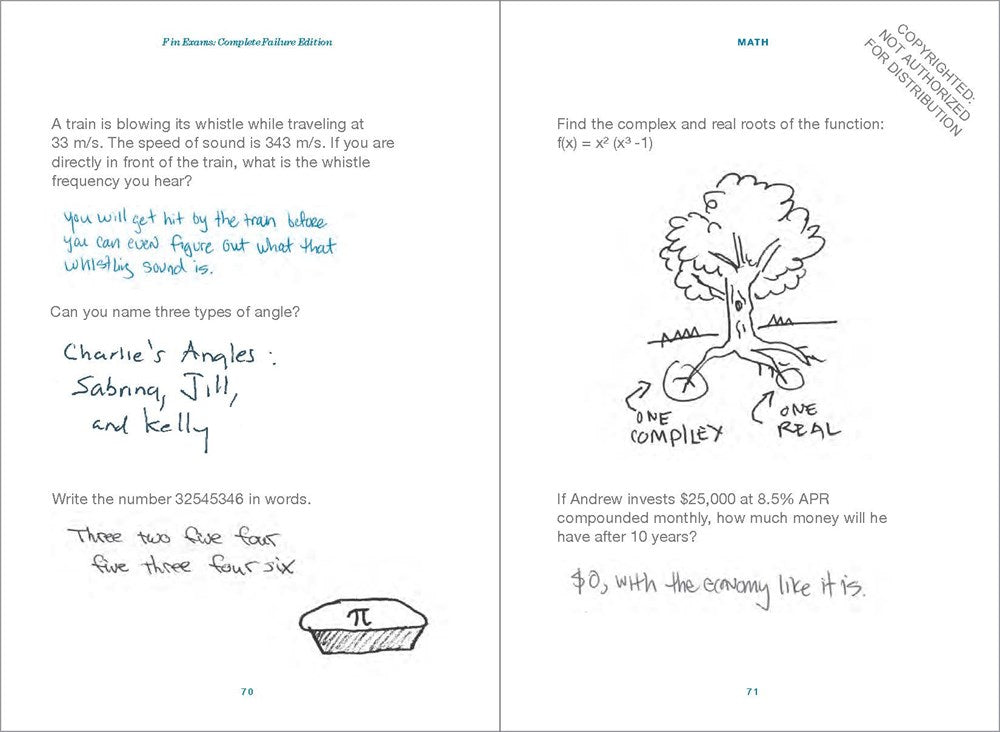 F in Exams: Complete Failure Edition
A train is blowing its whistle while traveling at
33 m/s. The speed of sound is 343 m/s. If you are
directly in front of the train, what is the whistle
frequency you hear?
you will get hit by the train before
you can even figure out what that
whistling sound is.
Can you name three types of angle?
Charlie's Angles:
Sabrina, Jill,
and Kelly
Write the number 32545346 in words.
Three two five four
five three four six
π
70
MATH
COPYRIGHTED:
NOT AUTHORIZED
FOR DISTRIBUTION
Find the complex and real roots of the function:
f(x) = x² (x³ -1)
ONE
COMPLEX
ONE
REAL
If Andrew invests $25,000 at 8.5% APR
compounded monthly, how much money will he
have after 10 years?
$0, with the economy like it is.
71